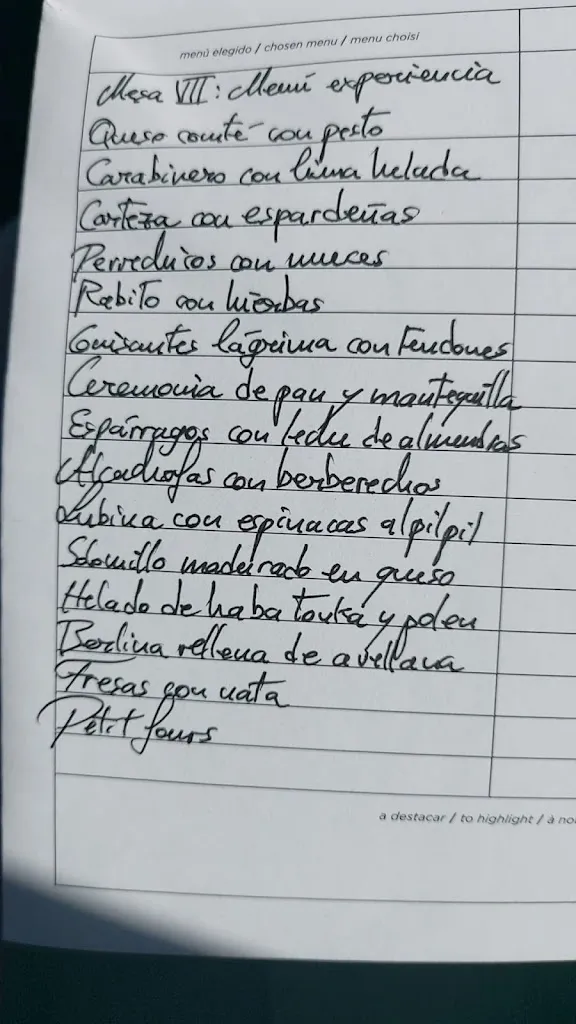 menú elegido / chosen menu / menu choisi
Mesa VII: Menú experiencia
Queso comté con pesto
Carabinero con lima helada
Corteza con espardeñas
Perrechicos con nueces
Rabito con hierbas
Guisantes lágrima con tendones
Ceremonia de pan y mantequilla
Espárragos con leche de almendras
Alcachofas con berberechos
Lubina con espinacas al pilpil
Solomillo madurado en queso
Helado de haba tonka y polen
Berlina rellena de avellana
Fresas con nata
Petit fours
a destacar / to highlight / à no